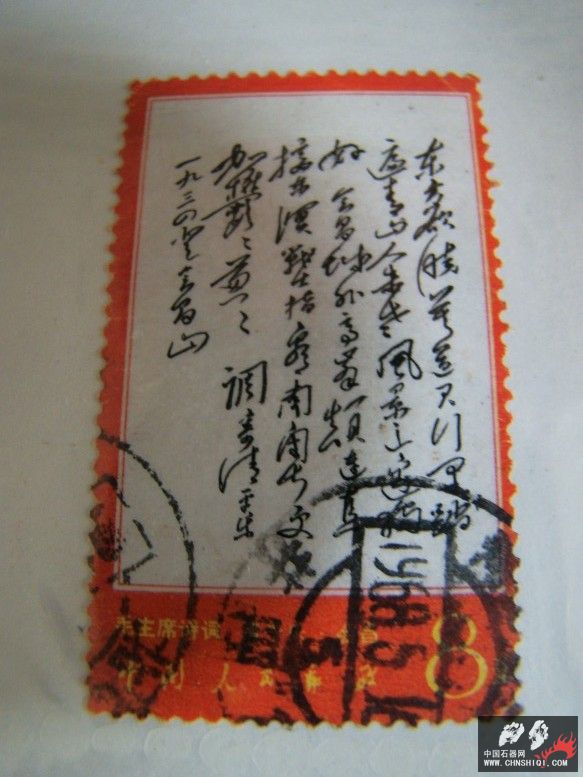 东方欲晓莫道君行早踏
遍青山人未老风景这边独
好 会昌城外高峰颠连直
接东溟战士指看南粤更
加鬱〻葱〻 调寄清平乐
一九三四登会昌山
毛主席诗词 会昌
中国人民邮政
8
1968.5.1
中国石器网
WWW.CHNSHIQI.COM